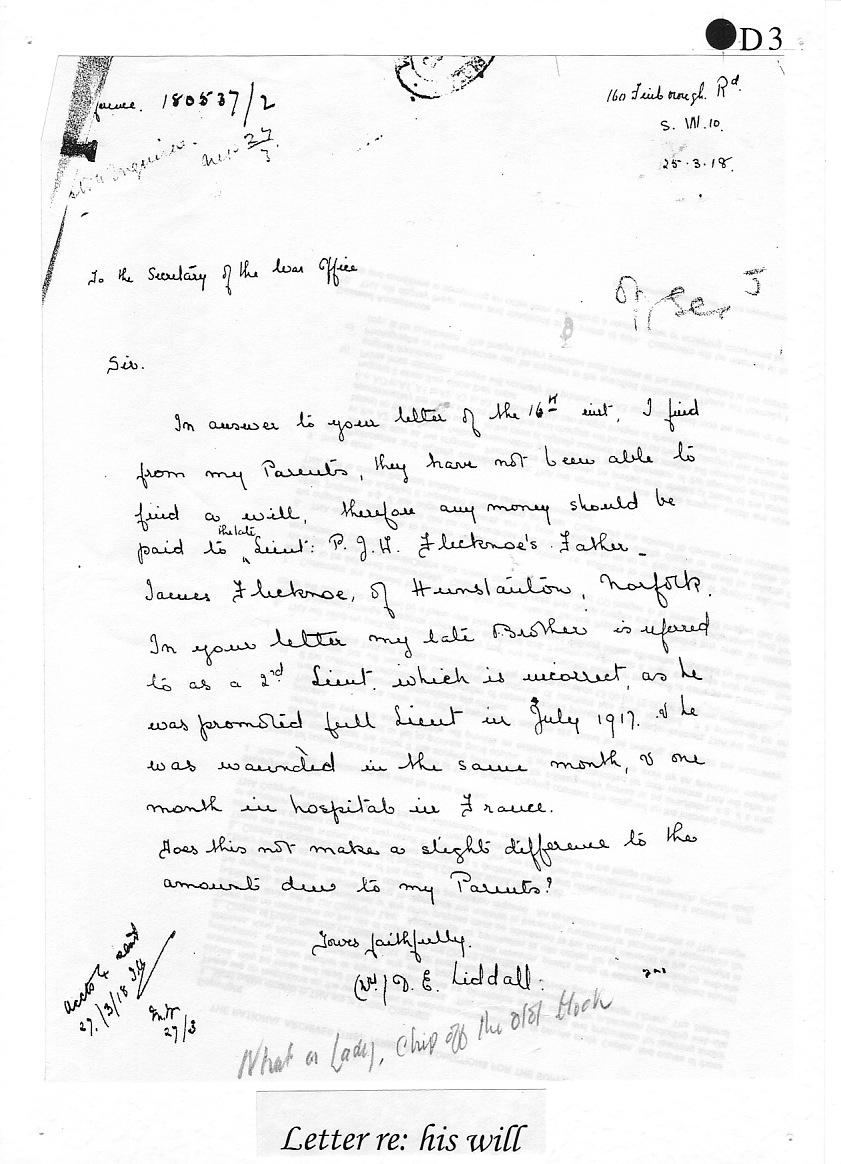 D3
180537/2
160 Finborough Rd.
S.W.10.
25.3.18.
27/3
To the Secretary of the War Office
Sir.
In answer to your letter of the 16th inst, I find
from my Parents, they have not been able to
find a will, therefore any money should be
paid to the late Lieut: P. J. H. Flecknoe's Father -
James Flecknoe, of Hunstanton, Norfolk.
In your letter my late Brother is refered
to as a 2nd Lieut. which is incorrect, as he
was promoted full Lieut in July 1917. & he
was wounded in the same month, & one
month in hospital in France.
Does this not make a slight difference to the
amount due to my Parents?
Yours faithfully.
D. E. Liddall.
27/3/18
27/3
What a Lady, Chip off the old block
Letter re: his will